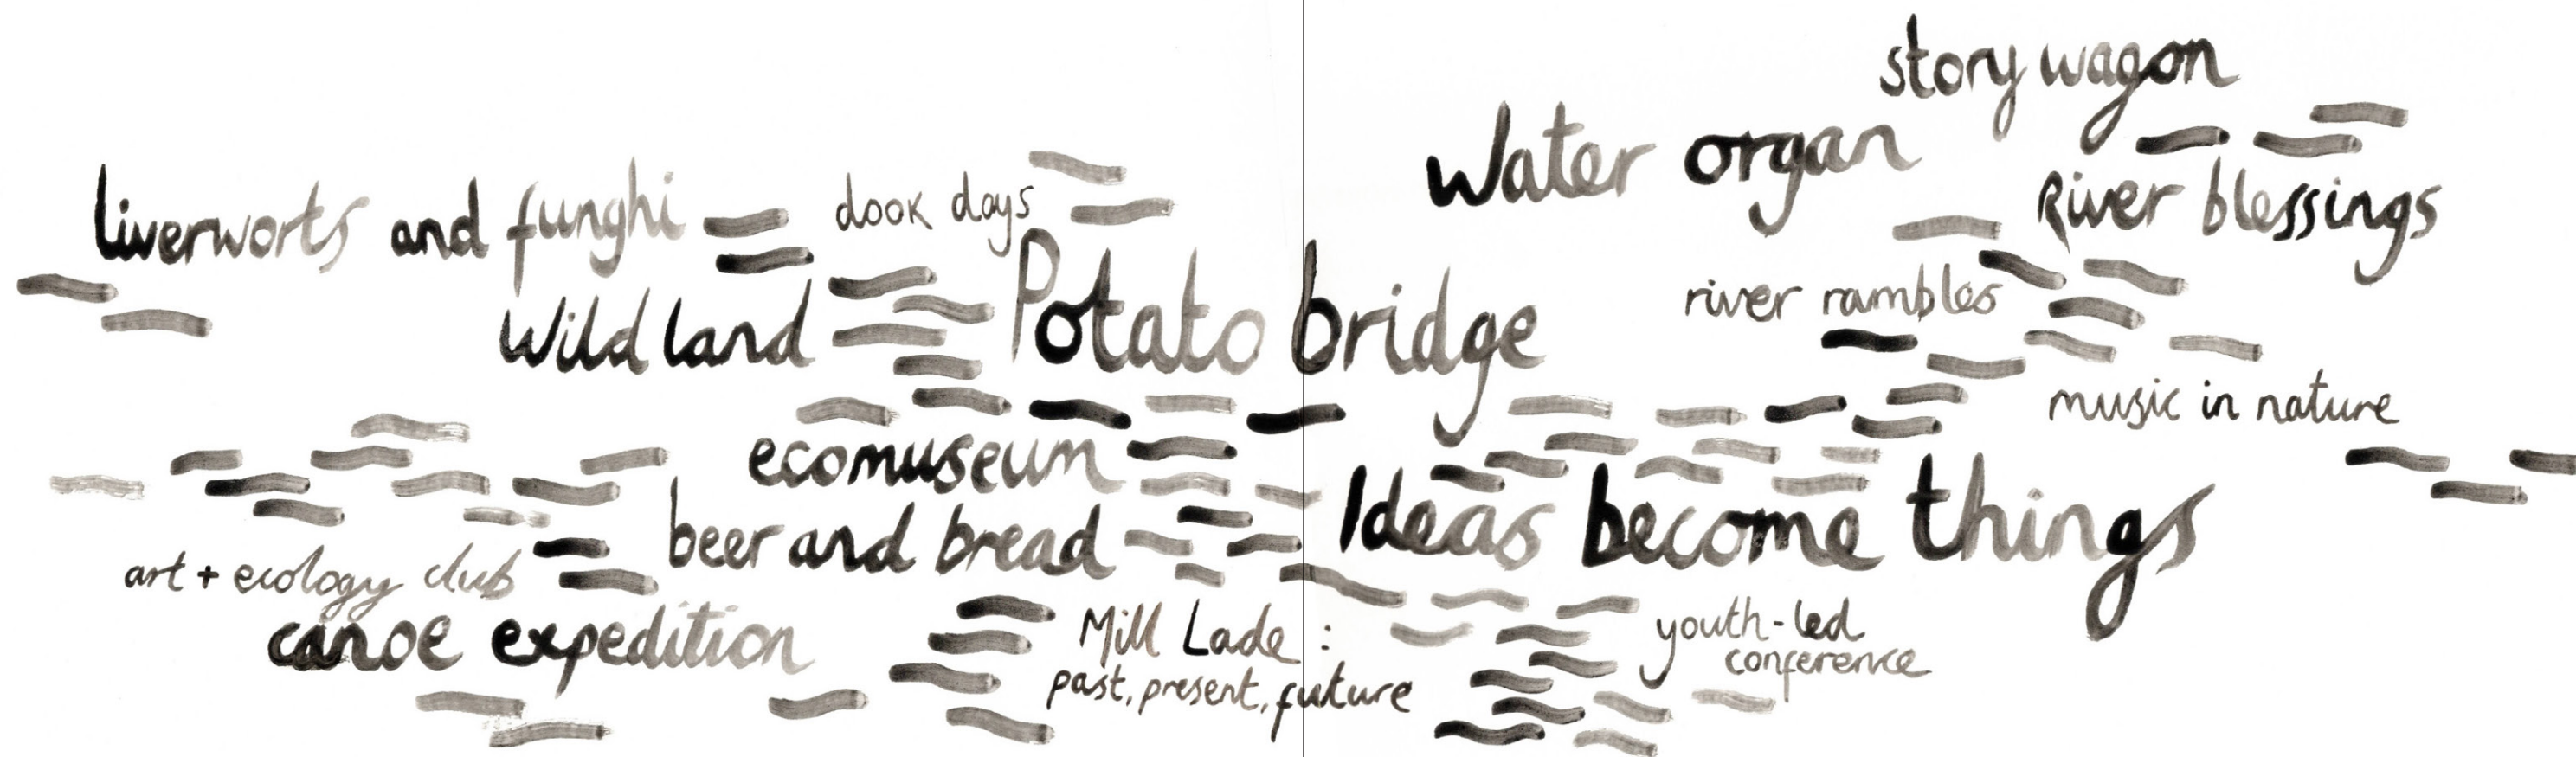 story wagon
Water organ
liverworts and funghi
dook days
River blessings
Wild land
Potato bridge
river rambles
music in nature
ecomuseum
beer and bread
Ideas become things
art + ecology club
canoe expedition
Mill Lade :
past, present, future
youth-led
conference